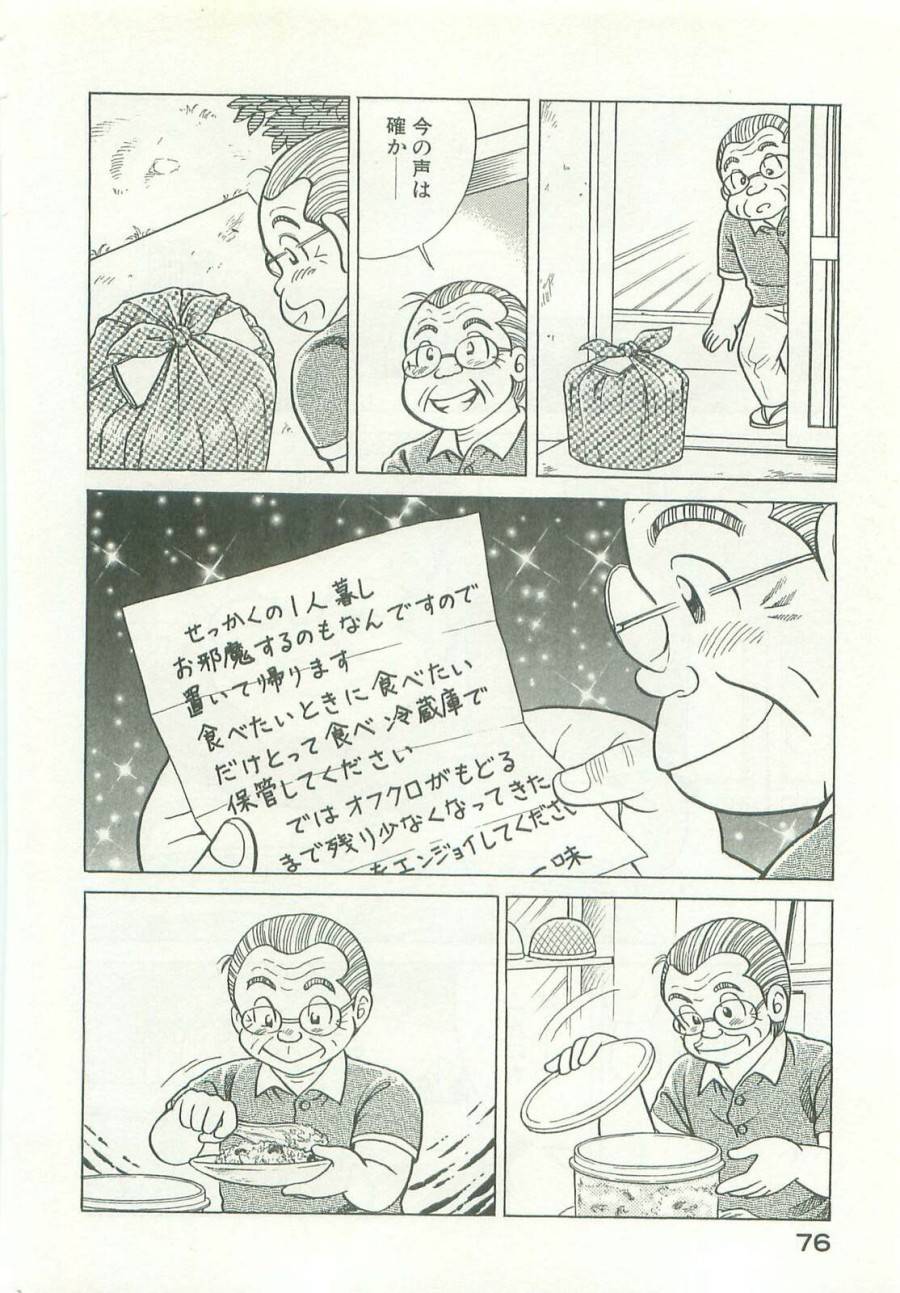 今の声は
確か――
せっかくの1人暮し
お邪魔するのもなんですので
置いて帰ります
食べたいときに食べたい
だけとって食べ冷蔵庫で
保管してください
ではオフクロがもどる
まで残り少なくなってきた
をエンジョイしてください
一味
76